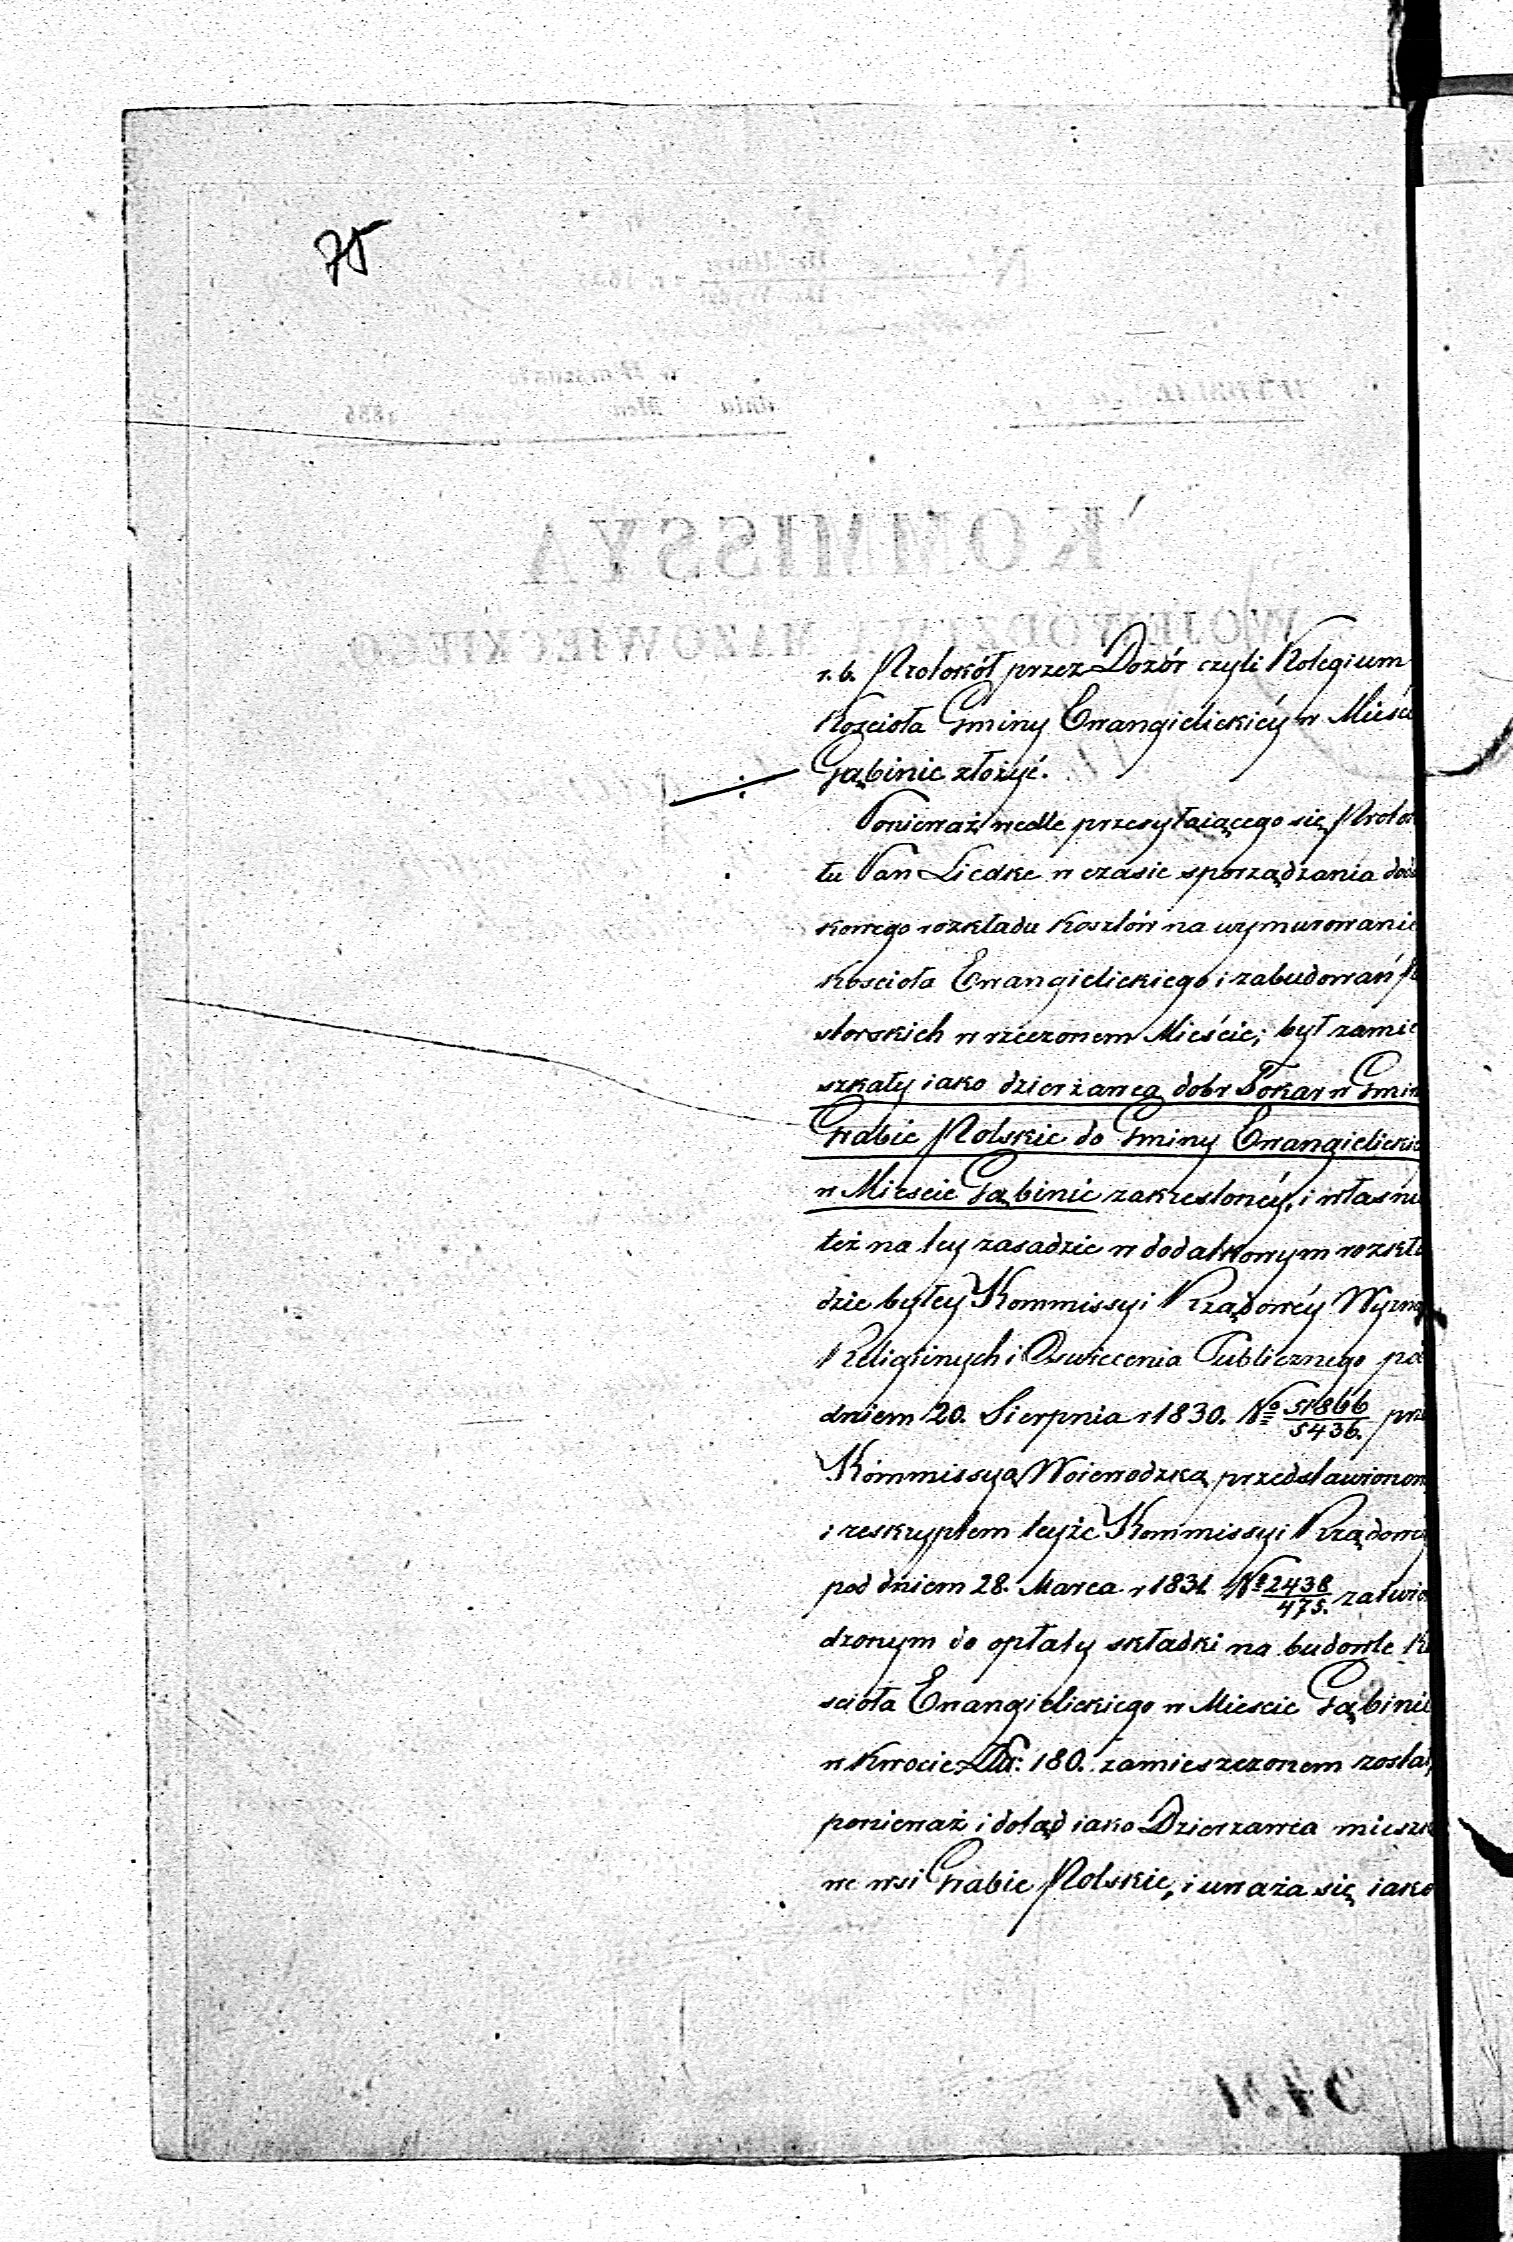 75
r. b. Protokół przez Dozór czyli Kolegium
Kozcioła Gminy Ewangielickiéy w Mieści
Gąbinie złożyć.
Ponieważ wedle przesyłaiącego się Protok
łu Pan Liedke w czasie sporządzania dod
kowego rozkładu kosztów na wymurowanie
kościoła Ewangielickiego i zabudowań P
storskich w rzeczonem Mieście; był zamie
szkały iako dzierżawca dobr Tokar w Gmin
Grabie Polskie do Gminy Ewangielickie
w Miescie Gąbinie zakresloney, i własnie
też na tey zasadzie w dodatkowym rozkła
dzie byłey Kommissyi Rządowéy Wyzna
Religiinych i Oswiecenia Publicznego pod
dniem 20. Sierpnia r 1830. No 51866/5436. prze
Kommissyą Woiewodzką przedstawionem
i reskryptem teyże Kommissyi Rządowé
pod dniem 28. Marca r 1831. No 2438/475. zatwie
dzonym do opłaty składki na budowle K
scioła Ewangielickiego w Miescie Gąbinie
w kwocie Złr: 180. zamieszczonem został,
ponieważ i dotąd iako Dzierzawca mieszk
we wsi Grabie Polskie, i uważa się iako
KOMMISSYA
WOJEWÓDZTWA MAZOWIECKIEGO.